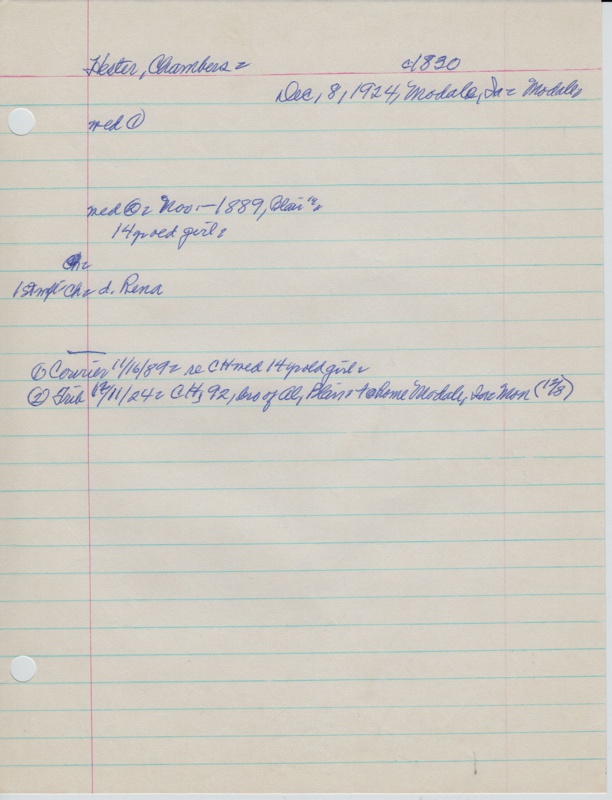 Hester, Chambers = c1830
Dec, 8, 1924, Modale, Ia = Modale,
med ①
med ② = Nov. — 1889, Blair
14 yr old girl =
Ch =
1st wife Ch = d. Rena
① Courier 11/16/89 = re CH med 14 yr old girl =
② Trib 12/11/24 = CH, 92, bro of Al, Blair, home Modale, Ia = Mon (12/8)